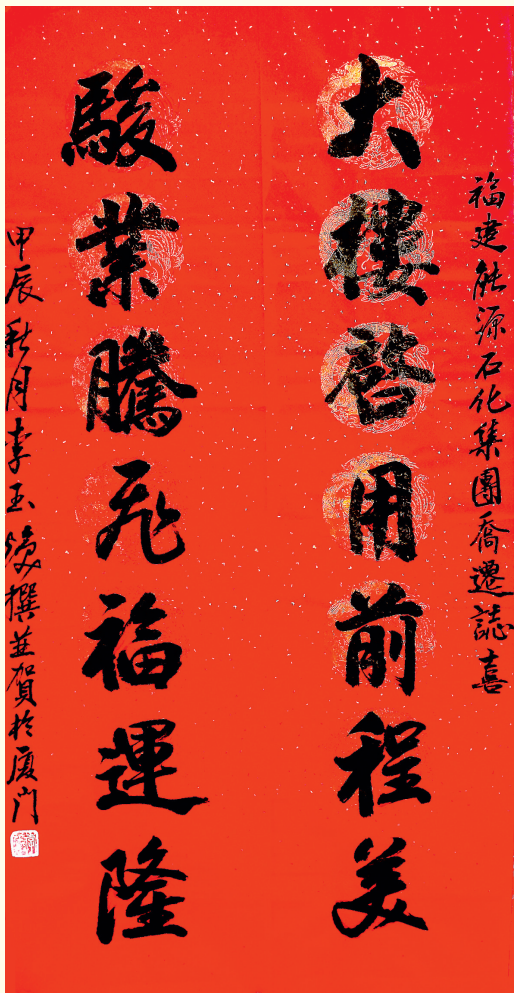 福建能源石化集團喬遷誌喜
大樓啓用前程美
駿業騰飛福運隆
甲辰秋月李玉焕撰並賀於厦门